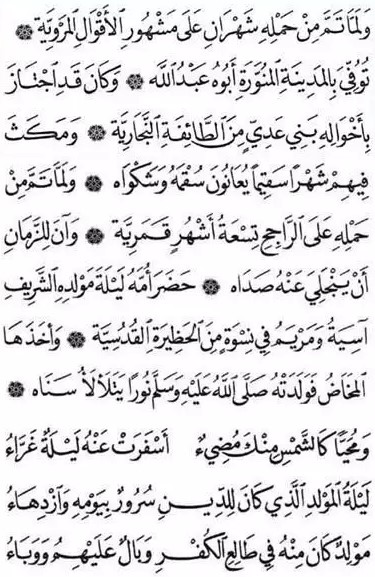 وَلَمَّا تَمَّ مِنْ حَمْلِهِ شَهْرَانِ عَلَى مَشْهُورِ الْأَقْوَالِ الْمَرْوِيَّةِ ۞
تُوُفِّيَ بِالْمَدِينَةِ الْمُنَوَّرَةِ أَبُوهُ عَبْدُ اللَّهِ ۞ وَكَانَ قَدِ اجْتَازَ
بِأَخْوَالِهِ بَنِي عَدِيٍّ مِنَ الطَّائِفَةِ النَّجَّارِيَّةِ ۞ وَمَكَثَ
فِيهِمْ شَهْرًا سَقِيمًا يُعَانُونَ سُقْمَهُ وَشَكْوَاهُ ۞ وَلَمَّا تَمَّ مِنْ
حَمْلِهِ عَلَى الرَّاجِحِ تِسْعَةُ أَشْهُرٍ قَمَرِيَّةٍ ۞ وَآنَ لِلزَّمَانِ
أَنْ يَنْجَلِيَ عَنْهُ صَدَاهُ ۞ حَضَرَ أُمَّهُ لَيْلَةَ مَوْلِدِهِ الشَّرِيفِ
آسِيَةُ وَمَرْيَمُ فِي نِسْوَةٍ مِنَ الْحَظِيرَةِ الْقُدْسِيَّةِ ۞ وَأَخَذَهَا
الْمَخَاضُ فَوَلَدَتْهُ صَلَّى اللَّهُ عَلَيْهِ وَسَلَّمَ نُورًا يَتَلَأْلَأُ سَنَاهُ ۞
وَمُحَيًّا كَالشَّمْسِ مِنْكَ مُضِيءٌ أَسْفَرَتْ عَنْهُ لَيْلَةٌ غَرَّاءُ
لَيْلَةُ الْمَوْلِدِ الَّذِي كَانَ لِلدِّينِ سُرُورٌ بِيَوْمِهِ وَازْدِهَاءُ
مَوْلِدٌ كَانَ مِنْهُ فِي طَالِعِ الْكُفْرِ وَبَالٌ عَلَيْهِمُ وَوَبَاءُ